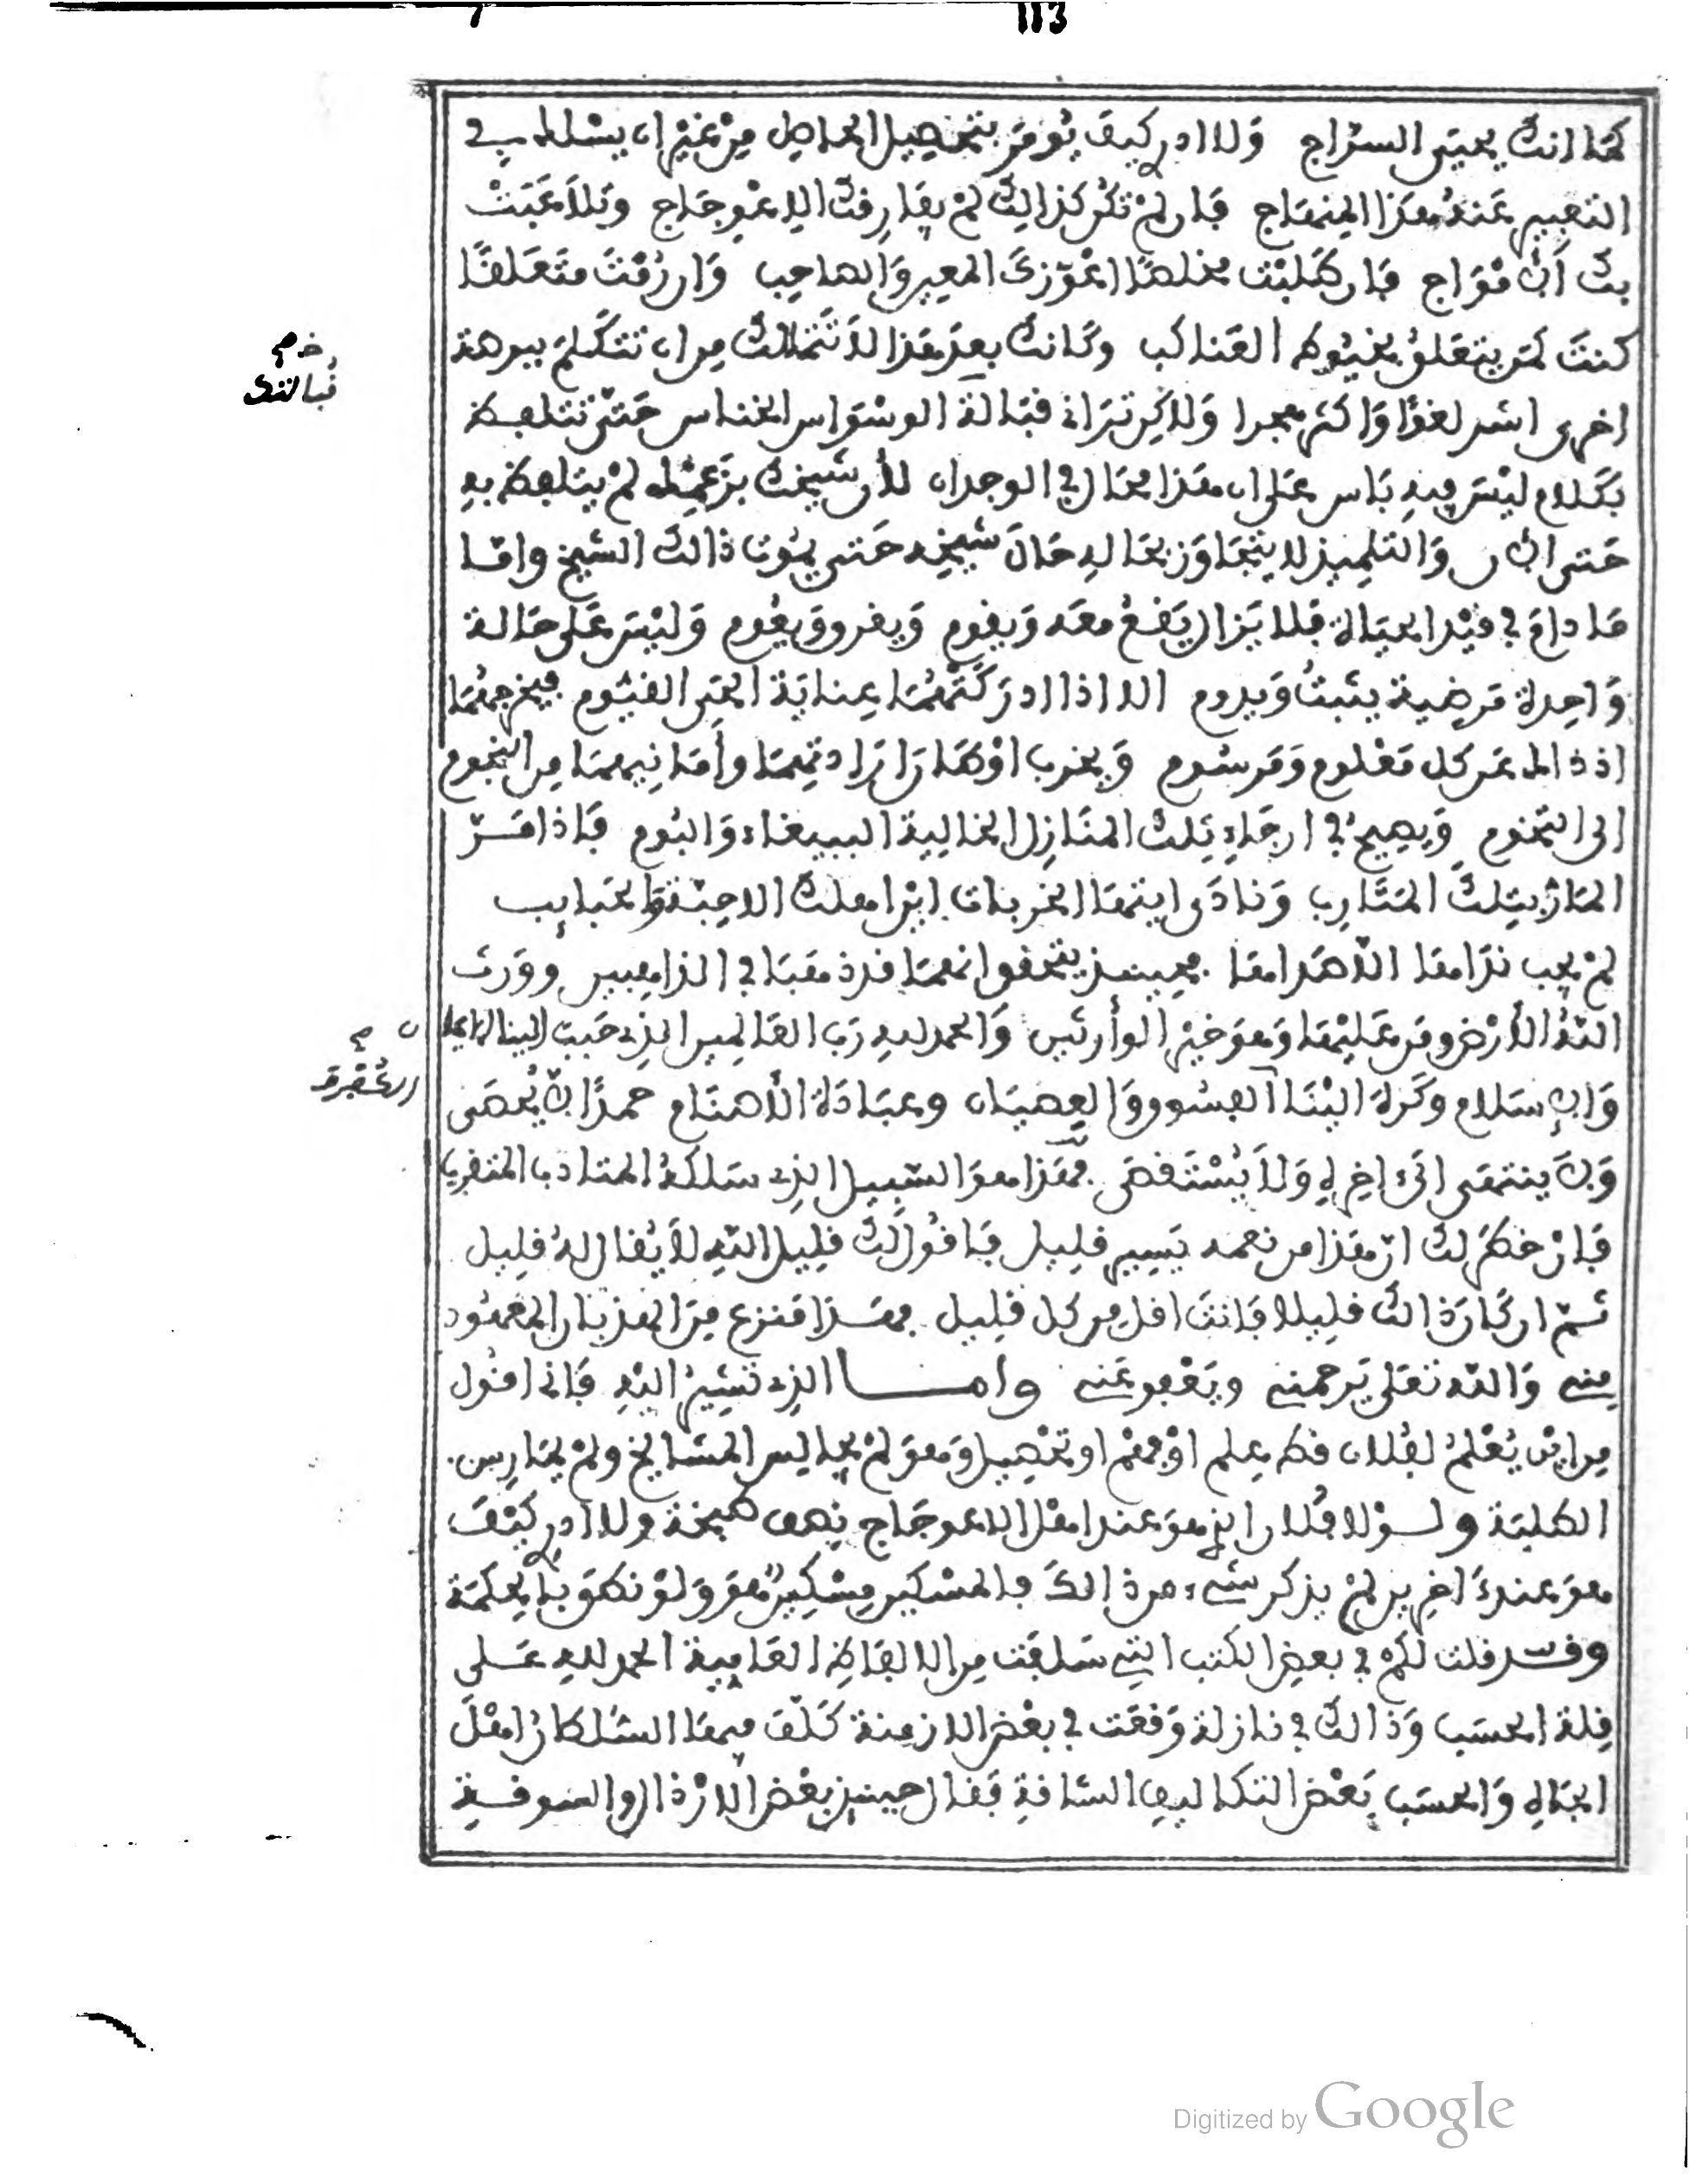 113
كما انك يحيى السراج ولا ادر كيف يومر بتحصيل الحاصل من غير ان يسلك في
التعبير عنه هذا المنهاج فان لم تكن كذالك لم يفارفك الاعوجاج وتلاعبت
بك الامواج فان طلبت مخلصا اعوزك المعين والصاحب وان رمت متعلقا
كنت كمن يتعلق بخيوط العناكب وكانك بعد هذا لا تتمالك من ان تتكلم بيرهة
خ م
قبالتك
اخرى اشد لغوا واكثر هجرا ولاكن تراني قبالة الوسواس الخناس حتى تتلفظ
بكلام ليس فيه باس على ان هذا محال في الوجدان لان شيخك بزعمك لم يتلفظ به
حتى الان والتلميذ لا يتجاوز بحاله حال شيخه حتى يموت ذالك الشيخ واما
ما دام في قيد الحياة فلا يزال يقع معه ويقوم ويفر ويقوم وليس على حالة
واحدة مرضية يثبت ويدوم الا اذا ادركتهما عناية الحي القيوم فيخرجهما
اذ ذاك عن كل معلوم ومرسوم ويخرب اوطان ارادتهما وامانيهما من النجوم
الى التخوم ويصيح في ارجاء تلك المنازل الخالية الببيغاء والبوم فاذا مر
المار بتلك المئارب ونادى ايتها الخربات اين اهلك الاحبة والحبايب
لم يجب نداها الا صداها فحينئذ يتحفوا انهما قد ذهبا في الذاهبين وورث
الله الارض ومن عليها وهو خير الوارثين والحمد لله رب العالمين الذي حبب الينا الايمان
ن م
والاسلام وكره الينا الفسوق والعصيان وعبادة الاصنام حمدا لا يحصى
ولا ينتهى الى اخره ولا يستقصى فهذا هو السبيل الذي سلكه المتادب المتقرب
فان خطر لك ان هذا من نعمه يسير قليل فاقول لك قليل الله لا يقال له قليل
ثم ان كان ذالك قليلا فانت اقل من كل قليل فهذا منزع من الهذيان المعهود
مني والله تعلى يرحمني ويعفو عني واما الذي تشير اليه فاني اقول
من اين يعلم لفلان قط علم او فهم او تحصيل وهو لم يجالس المشايخ ولم يمارس
الطلبة ولولا فلان الذي هو عند اهل الاعوجاج نصف طبخة ولا ادر كيف
هو عند اخرين لم يذكر شيء من ذالك فالمسكين مسكين هو ولو نطق بالحكمة
وقد قلت لكم في بعض الكتب التي سلفت من الالفاظ العامية الحمد لله على
قلة الحسب وذالك في نازلة وقعت في بعض الازمنة كلف فيها السلطان اهل
الجاه والحسب بعض التكاليف الشاقة فقال حينئذ بعض الارذال والسوقة
Digitized by Google